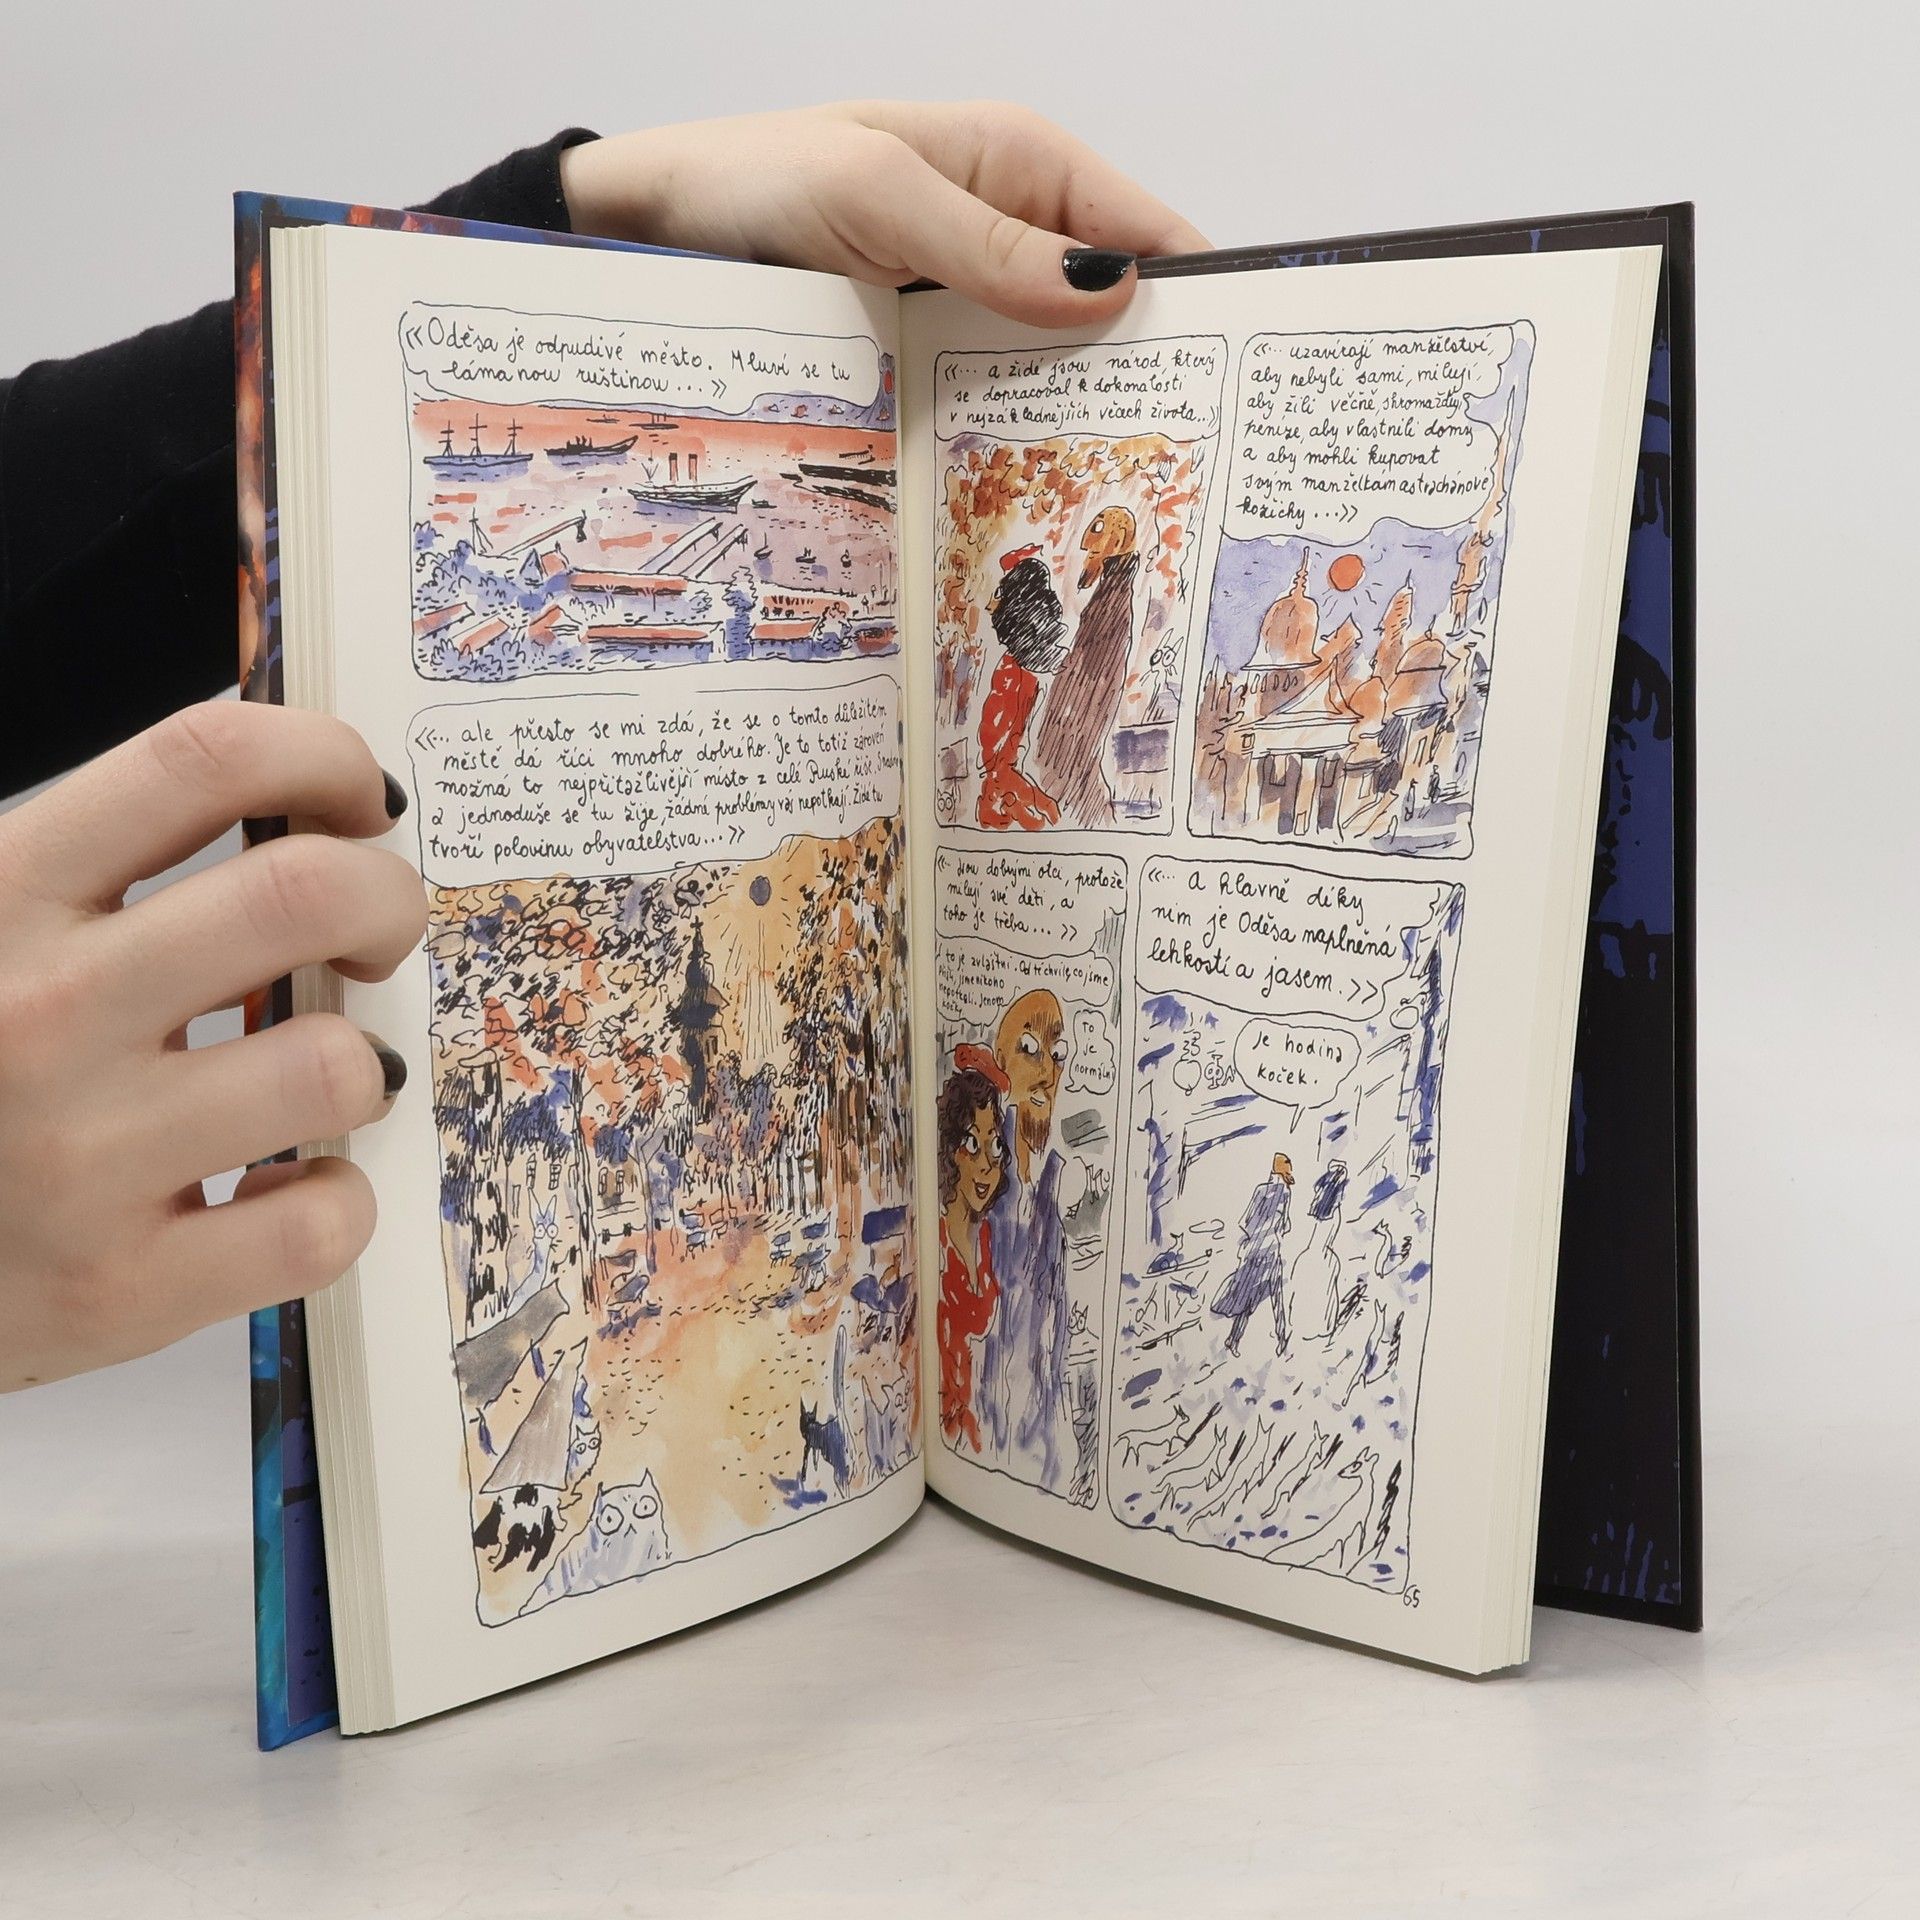 «Oděsa je odpudivé město. Mluví se tu
lámanou ruštinou...»
«... ale přesto se mi zdá, že se o tomto důležitém
městě dá říci mnoho dobrého. Je to totiž zároveň
možná to nejpřitažlivější místo z celé Ruské říše. Snadno
a jednoduše se tu žije, žádné problémy vás nepotkají. Židé tu
tvoří polovinu obyvatelstva...»
«... a židé jsou národ, který
se dopracoval k dokonalosti
v nejzákladnějších věcech života...»
«... uzavírají manželství,
aby nebyli sami, milují,
aby žili věčně, shromažďují
peníze, aby vlastnili domy
a aby mohli kupovat
svým manželkám astrachánové
kožichy...»
«... jsou dobrými otci, protože
milují své děti, a
toho je třeba... »
to je zvláštní. Od té chvíle, co jsme
přišli, jsme nikoho
nepotkali. Jenom
kočky.
To
je
normální
«... a hlavně díky
nim je Oděsa naplněná
lehkostí a jasem.»
Je hodina
koček.
65